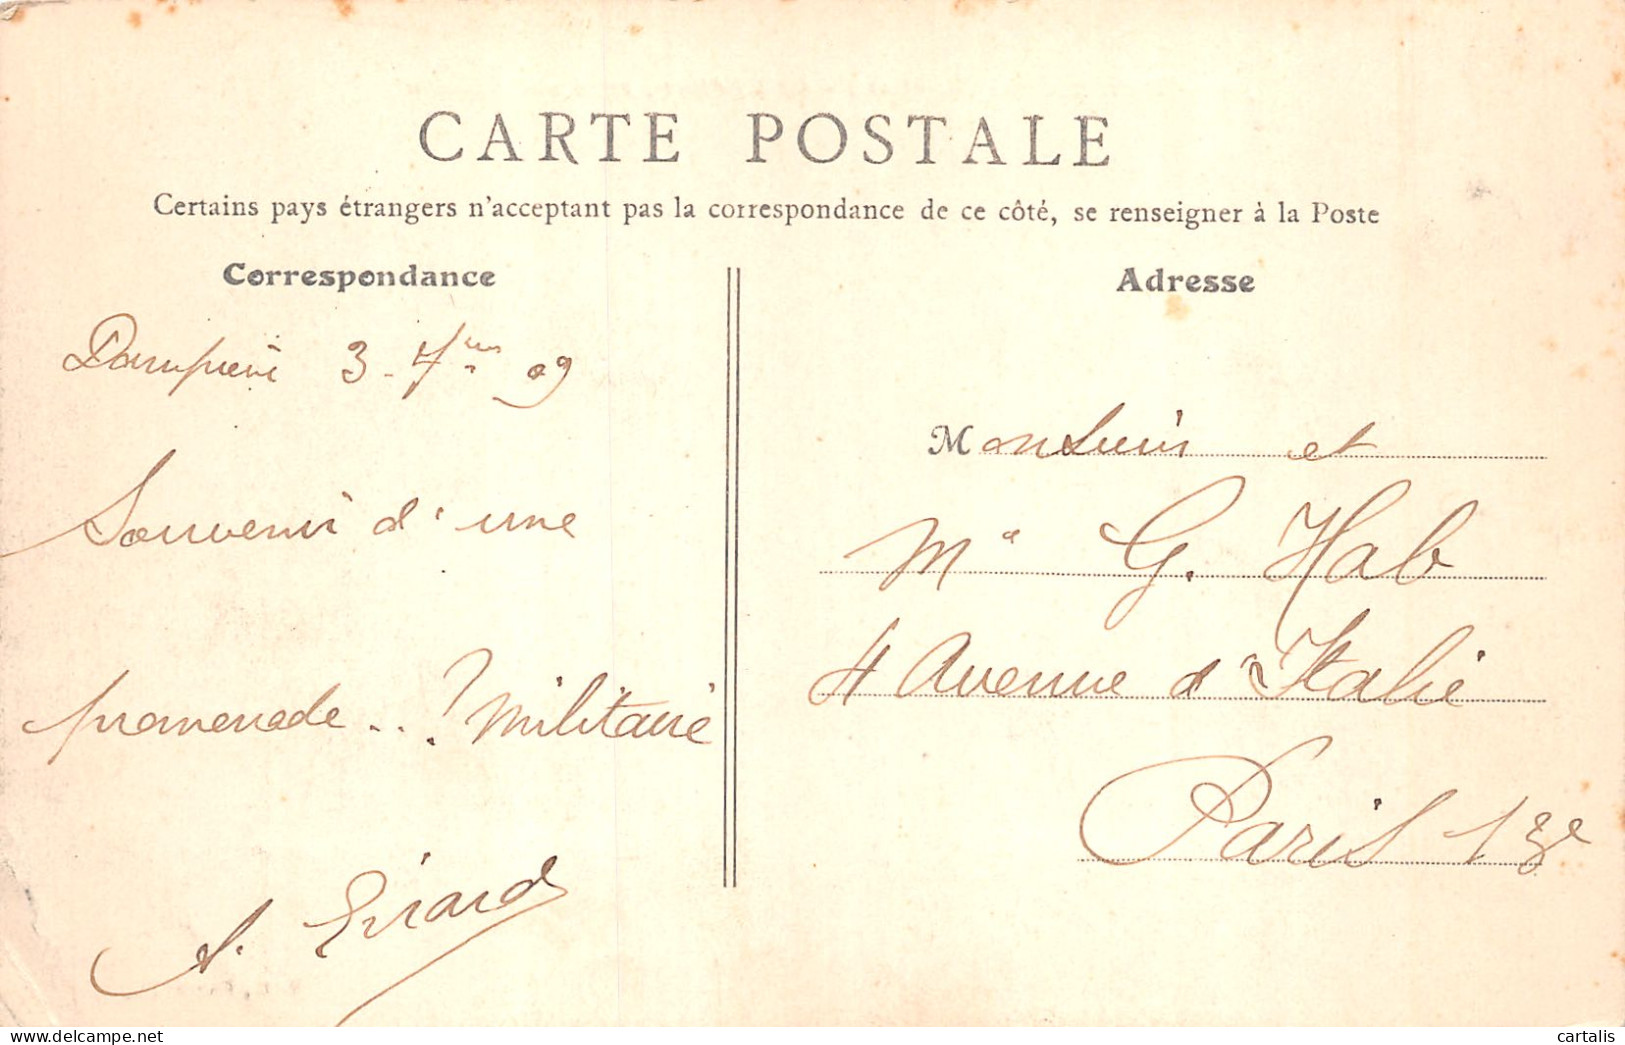 CARTE POSTALE
Certains pays étrangers n'acceptant pas la correspondance de ce côté, se renseigner à la Poste
Correspondance
Dampierre 3-7bre 09
Souvenir d'une
promenade..? Militaire
A. Girard
Adresse
Monsieur et
Me G. Hab
4 Avenue d'Italie
Paris 13e
delcampe.net
cartalis